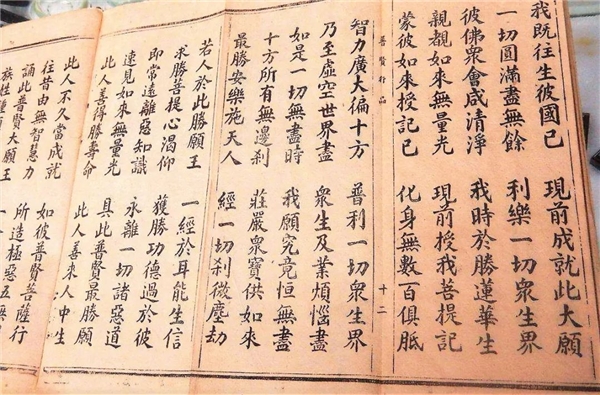 我既往生彼國已　現前成就此大願
一切圓滿盡無餘　利樂一切衆生界
彼佛衆會咸清淨　我時於勝蓮華生
親覩如來無量光　現前授我菩提記
蒙彼如來授記已　化身無數百俱胝
普賢行品　十二
智力廣大徧十方　普利一切衆生界
乃至虛空世界盡　衆生及業煩惱盡
如是一切無盡時　我願究竟恒無盡
十方所有無邊剎　莊嚴衆寶供如來
最勝安樂施天人　經一切剎微塵劫
若人於此勝願王　一經於耳能生信
求勝菩提心渴仰　獲勝功德過於彼
即常遠離惡知識　永離一切諸惡道
速見如來無量光　具此普賢最勝願
此人善得勝壽命　此人善來人中生
此人不久當成就　如彼普賢菩薩行
往昔由無智慧力　所造極惡五無
誦此普賢大願王　一
族姓種